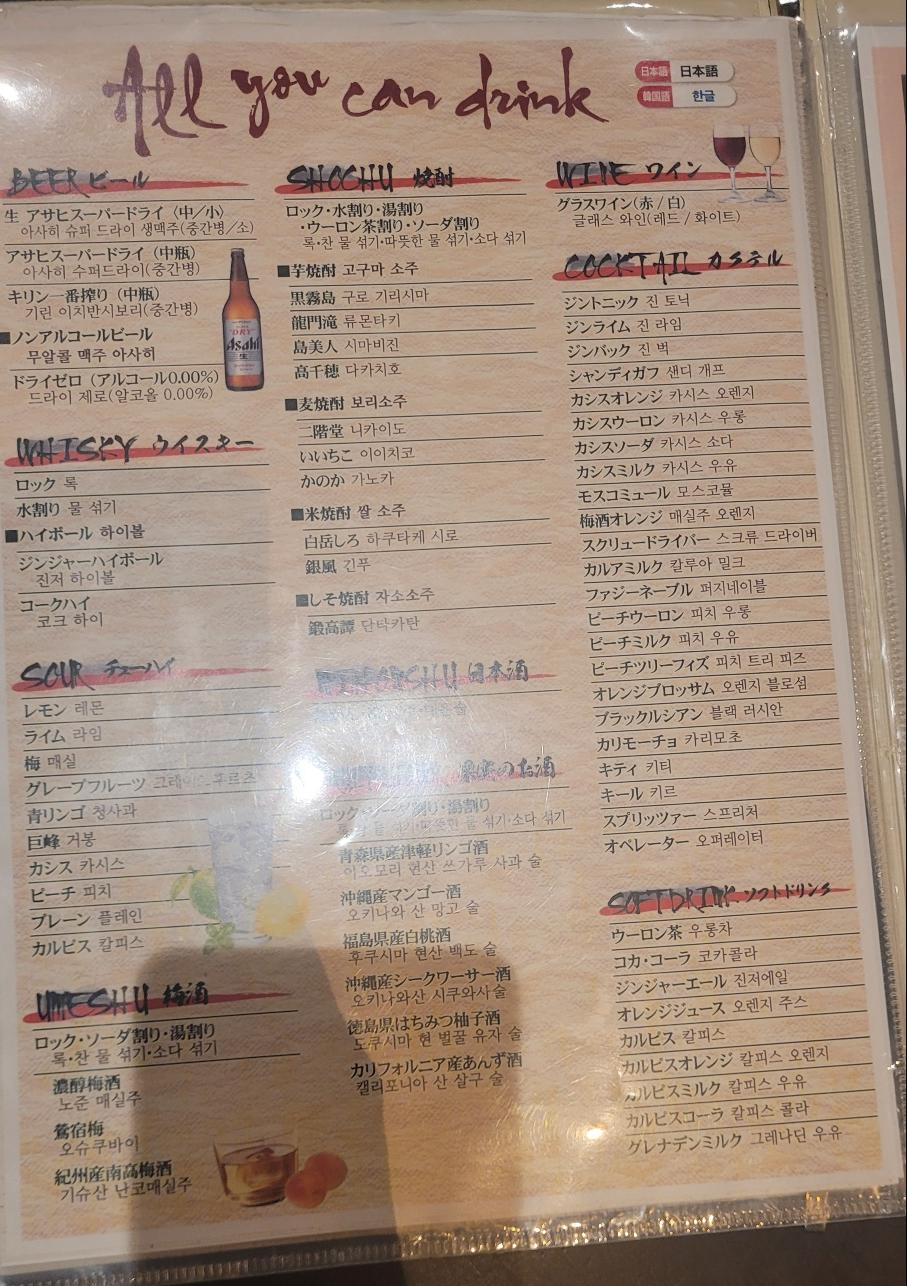 All you can drink
日本語 日本語
韓国語 한글
BEER ビール
生 アサヒスーパードライ（中/小）
아사히 슈퍼 드라이 생맥주(중간병/소)
アサヒスーパードライ（中瓶）
아사히 수퍼드라이(중간병)
キリン一番搾り（中瓶）
기린 이치반시보리(중간병)
■ノンアルコールビール
무알콜 맥주 아사히
ドライゼロ（アルコール0.00%）
드라이 제로(알코올 0.00%)
DRY
Asahi
生
WHISKY ウイスキー
ロック 록
水割り 물 섞기
■ハイボール 하이볼
ジンジャーハイボール
진저 하이볼
コークハイ
코크 하이
SOUR チューハイ
レモン 레몬
ライム 라임
梅 매실
グレープフルーツ
青リンゴ 청사과
巨峰 거봉
カシス 카시스
ピーチ 피치
プレーン 플레인
カルピス 칼피스
UMESHU 梅酒
ロック・ソーダ割り・湯割り
록·찬 물 섞기·소다 섞기
濃醇梅酒
노준 매실주
鶯宿梅
오슈쿠바이
紀州産南高梅酒
기슈산 난코매실주
SHOCHU 焼酎
ロック・水割り・湯割り
・ウーロン茶割り・ソーダ割り
록·찬 물 섞기·따뜻한 물 섞기·소다 섞기
■芋焼酎 고구마 소주
黒霧島 구로 기리시마
龍門滝 류몬타키
島美人 시마비진
高千穂 다카치호
■麦焼酎 보리소주
二階堂 니카이도
いいちこ 이이치코
かのか 가노카
■米焼酎 쌀 소주
白岳しろ 하쿠타케 시로
銀風 긴푸
■しそ焼酎 자소소주
鍛高譚 단타카탄
日本酒
果実のお酒
ロック・ソーダ割り・湯割り
따뜻한 물 섞기·소다 섞기
青森県産津軽リンゴ酒
아오모리 현산 쓰가루 사과 술
沖縄産マンゴー酒
오키나와 산 망고 술
福島県産白桃酒
후쿠시마 현산 백도 술
沖縄産シークワーサー酒
오키나와산 시쿠와사술
徳島県はちみつ柚子酒
도쿠시마 현 벌꿀 유자 술
カリフォルニア産あんず酒
캘리포니아 산 살구 술
WINE ワイン
グラスワイン(赤/白)
글래스 와인(레드/화이트)
COCKTAIL カクテル
ジントニック 진 토닉
ジンライム 진 라임
ジンバック 진 벅
シャンディガフ 샌디 개프
カシスオレンジ 카시스 오렌지
カシスウーロン 카시스 우롱
カシスソーダ 카시스 소다
カシスミルク 카시스 우유
モスコミュール 모스코뮬
梅酒オレンジ 매실주 오렌지
スクリュードライバー 스크류 드라이버
カルアミルク 칼루아 밀크
ファジーネーブル 퍼지네이블
ピーチウーロン 피치 우롱
ピーチミルク 피치 우유
ピーチツリーフィズ 피치 트리 피즈
オレンジブロッサム 오렌지 블로섬
ブラックルシアン 블랙 러시안
カリモーチョ 카리모초
キティ 키티
キール 키르
スプリッツァー 스프리처
オペレーター 오퍼레이터
SOFT DRINK ソフトドリンク
ウーロン茶 우롱차
コカ・コーラ 코카콜라
ジンジャーエール 진저에일
オレンジジュース 오렌지 주스
カルピス 칼피스
カルピスオレンジ 칼피스 오렌지
カルピスミルク 칼피스 우유
カルピスコーラ 칼피스 콜라
グレナデンミルク 그레나딘 우유